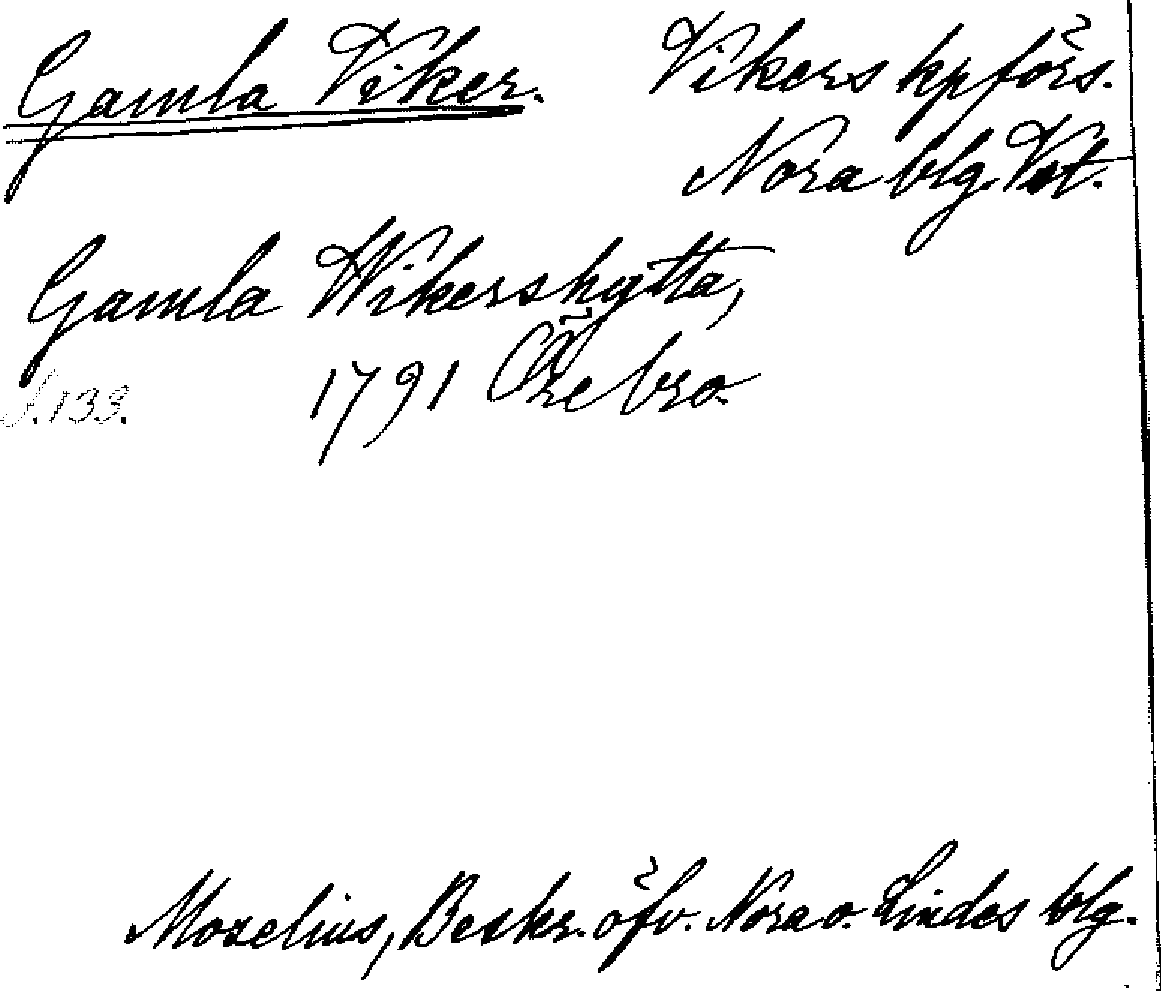 Gamla Viker. Vikers kpförs.
Nora blg. Vst.
Gamla Wikershytta,
S. 133. 1791 Örebro.
Morelius, Beskr. öfv. Nora o. Lindes blg.